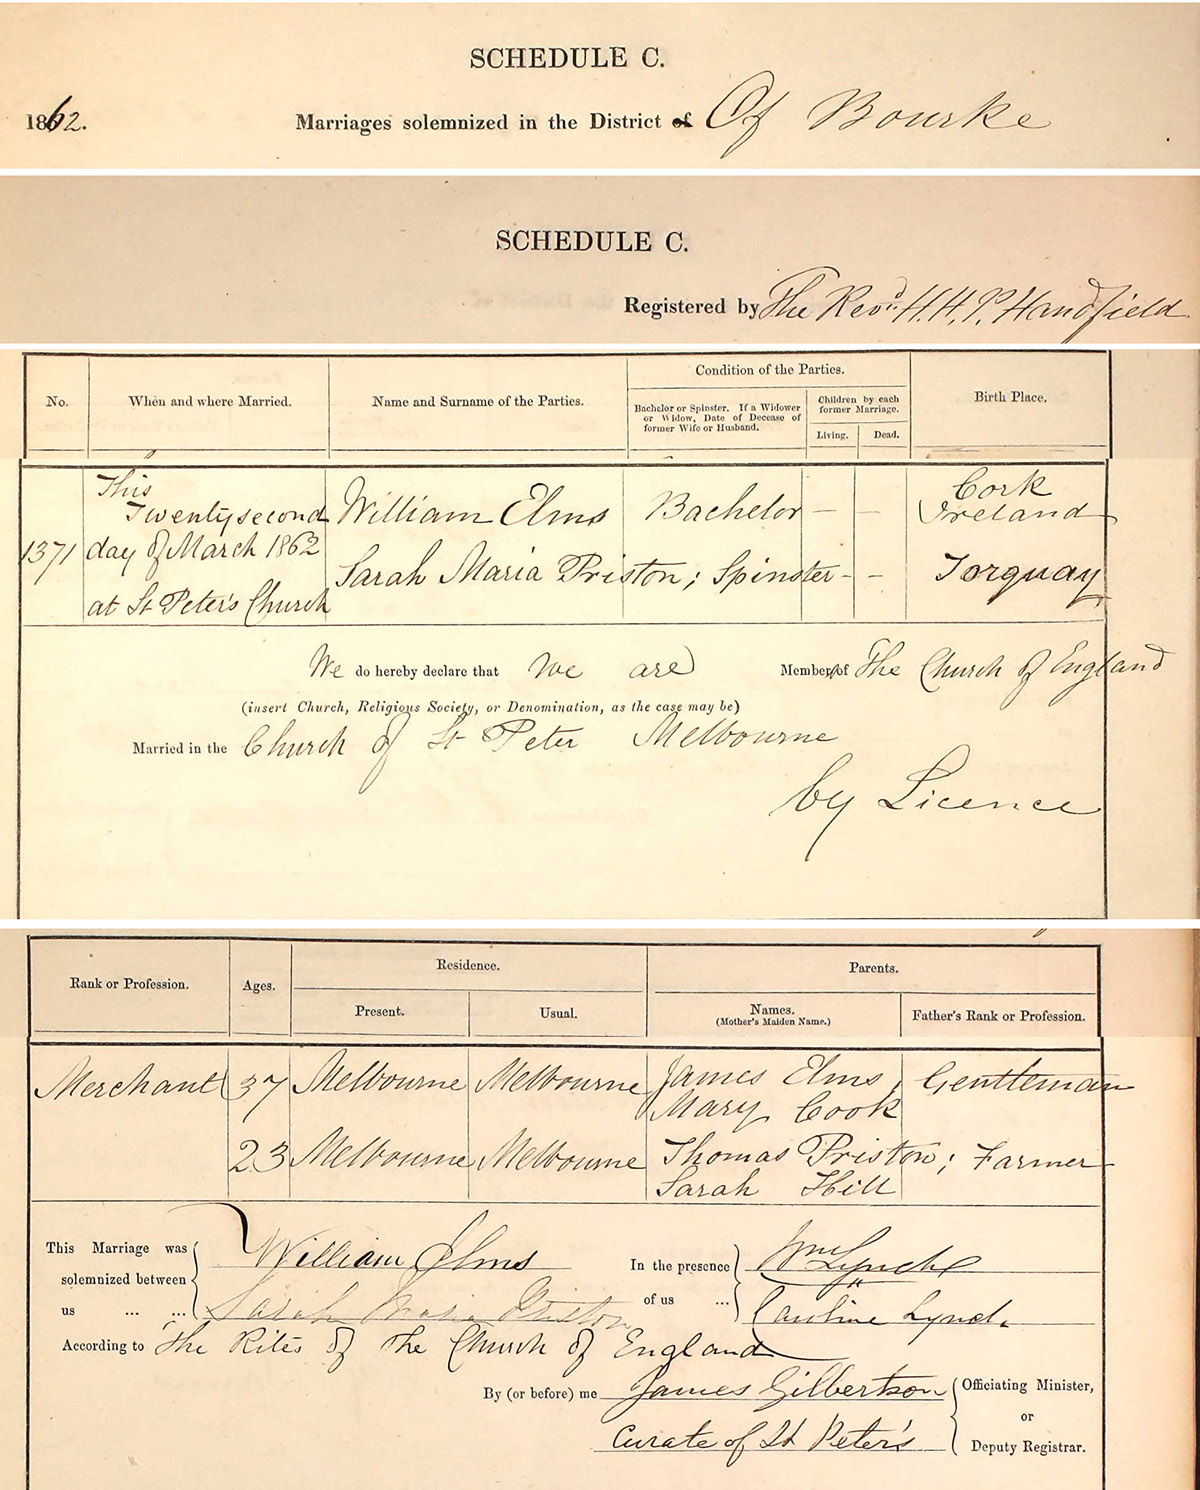 SCHEDULE C.
1862. Marriages solemnized in the District of Of Bourke
SCHEDULE C.
Registered by The Revd. H. H. P. Handfield
No.
When and where Married.
Name and Surname of the Parties.
Condition of the Parties.
Bachelor or Spinster. If a Widower
or Widow, Date of Decease of
former Wife or Husband.
Children by each
former Marriage.
Living. Dead.
Birth Place.
1371
This
Twentysecond
day of March 1862
at St Peter's Church
William Elms Bachelor — —
Cork
Ireland
Sarah Maria Priston; Spinster - - Torquay
We do hereby declare that We are Members of The Church of England
(insert Church, Religious Society, or Denomination, as the case may be)
Married in the Church of St Peter Melbourne
by Licence
Rank or Profession.
Ages.
Residence.
Present. Usual.
Parents.
Names.
(Mother's Maiden Name.)
Father's Rank or Profession.
Merchant 37 Melbourne Melbourne James Elms, Gentleman
Mary Cook
23 Melbourne Melbourne Thomas Priston; Farmer
Sarah Hill
This Marriage was
solemnized between
us ... ...
William Elms
Sarah Maria Priston
In the presence
of us ...
Wm Lynch
Caroline Lynch.
According to The Rites of The Church of England
By (or before) me James Gilbertson
Curate of St Peter's
Officiating Minister,
or
Deputy Registrar.